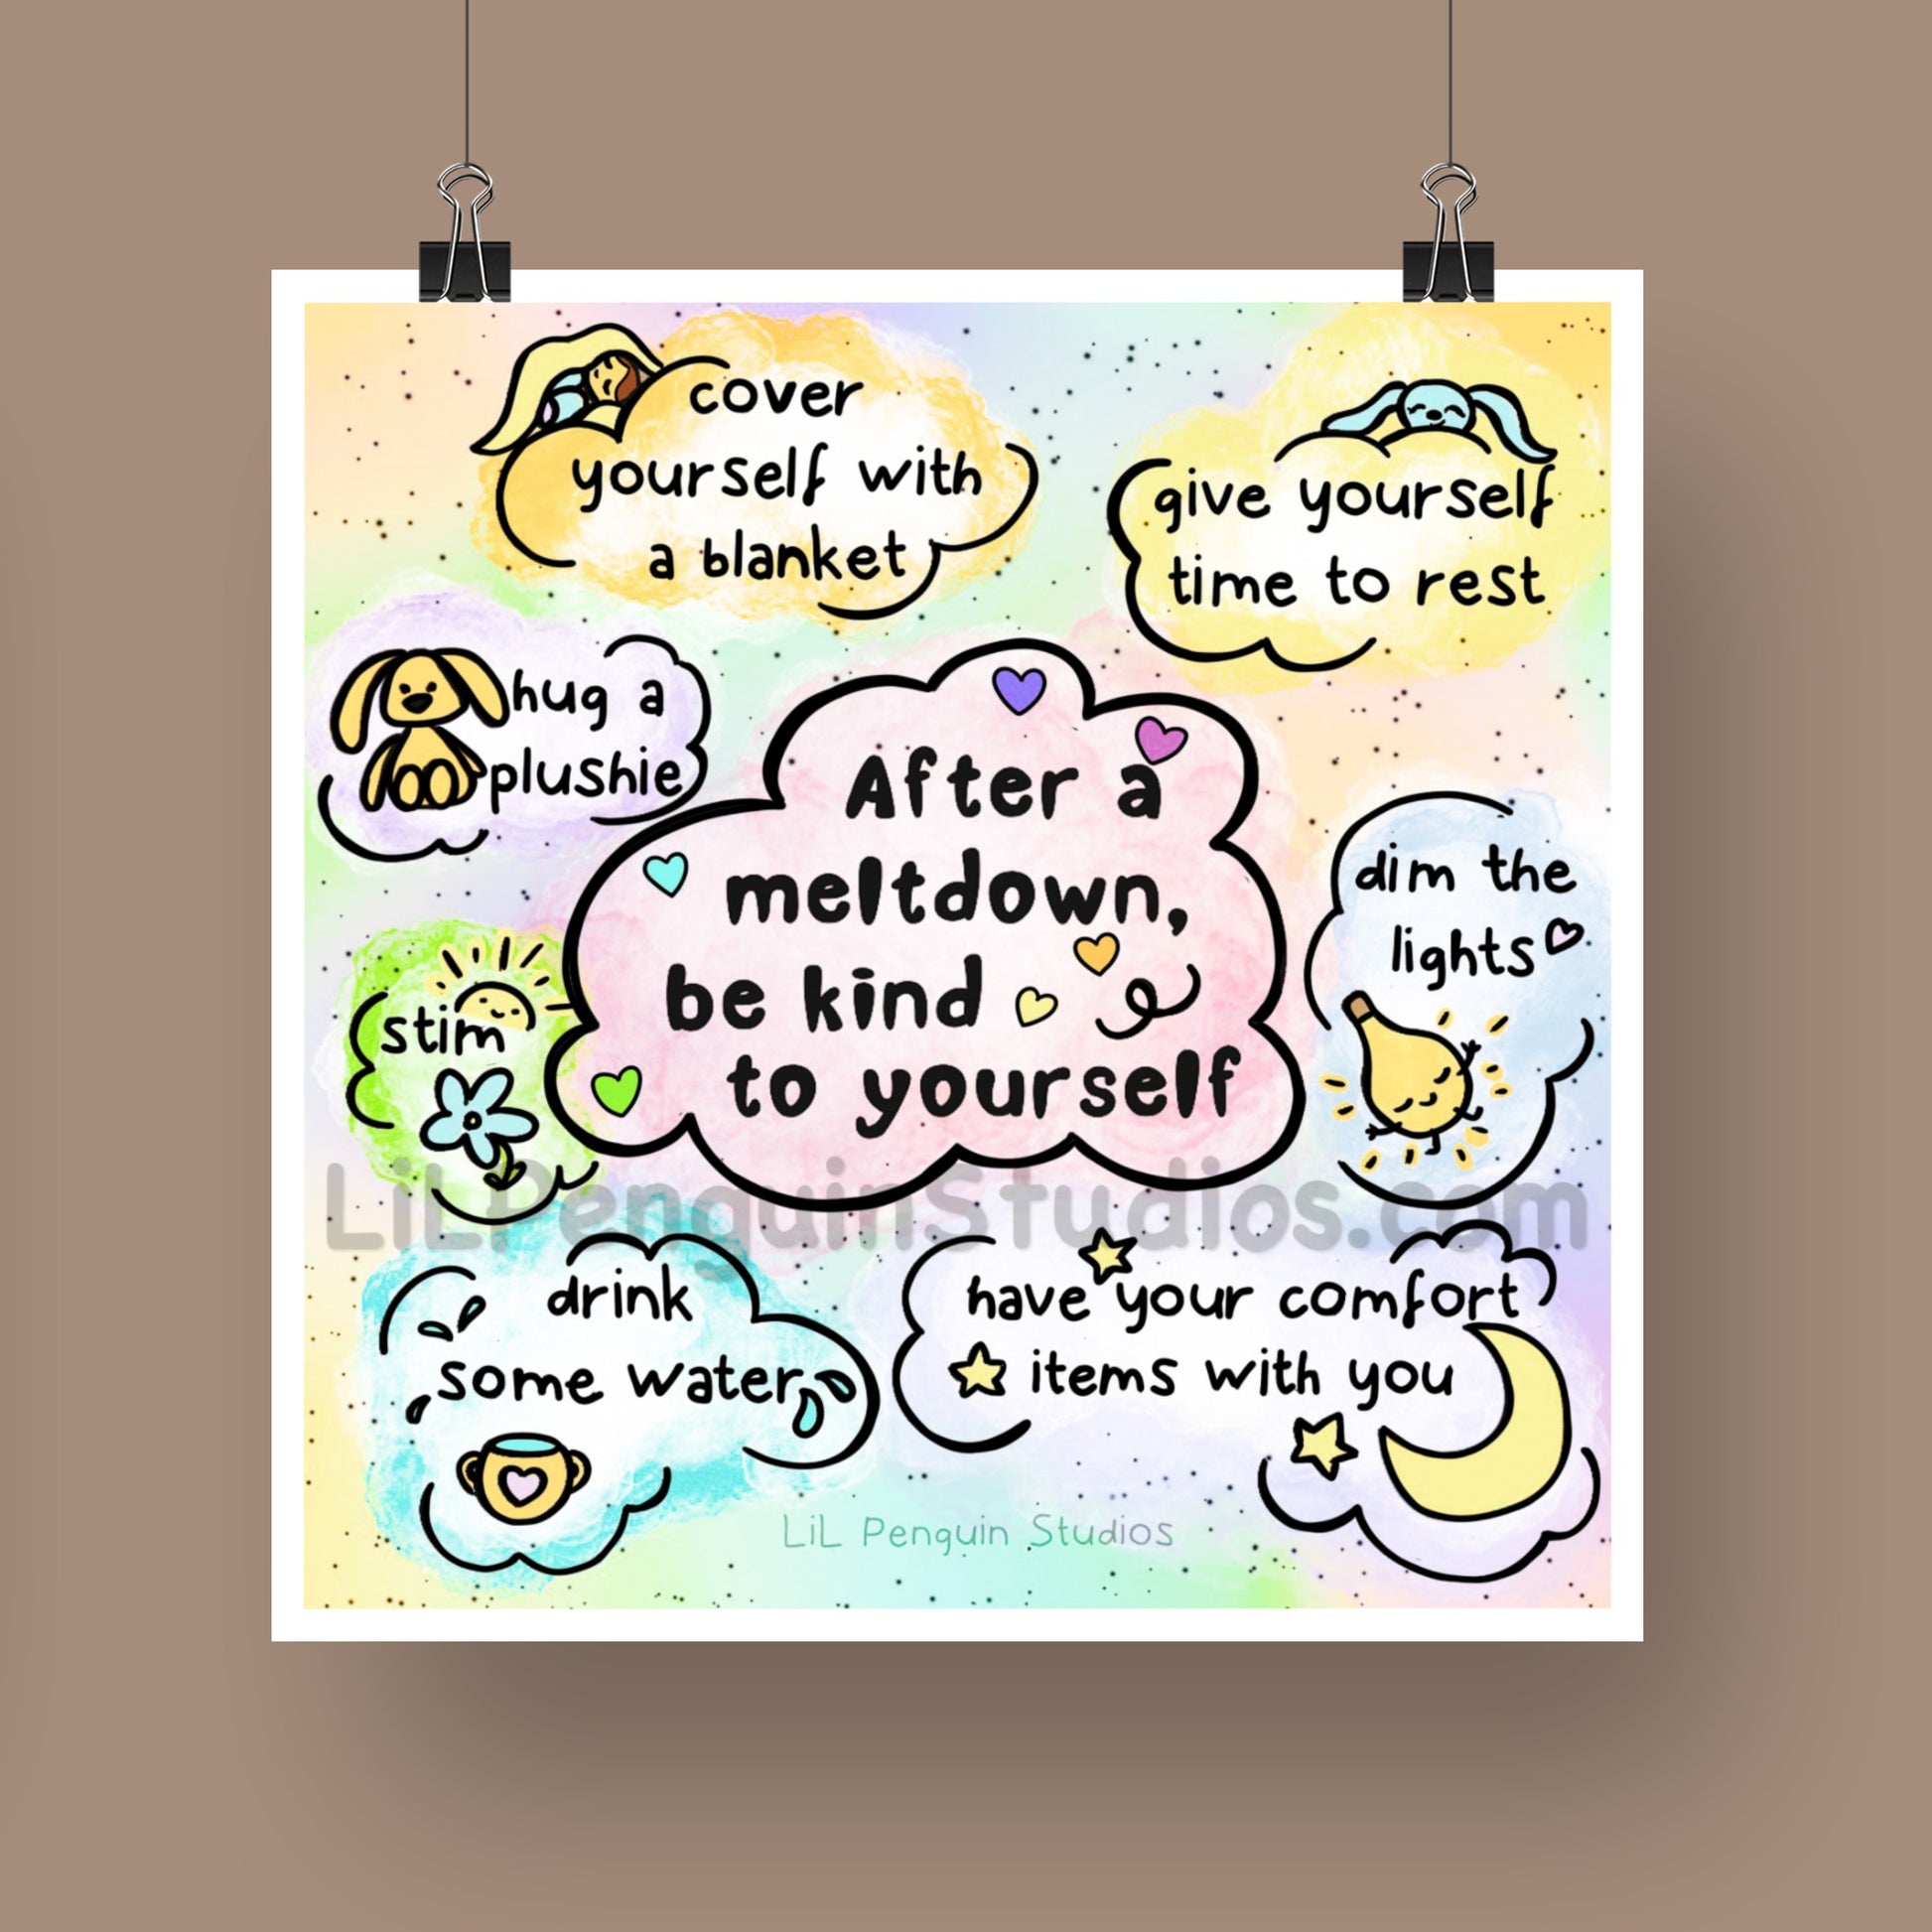 cover
yourself with
a blanket
give yourself
time to rest
hug a
plushie
After a
meltdown,
be kind
to yourself
dim the
lights
stim
LiLPenguinStudios.com
drink
some water
have your comfort
items with you
LiL Penguin Studios